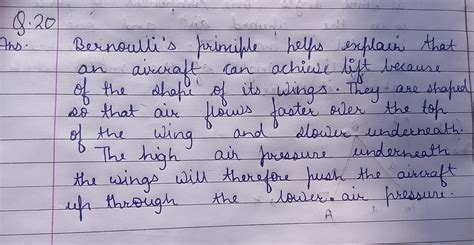 Q.20
Ans. Bernoulli's principle helps explain that
an aircraft can achieve lift because
of the shape of its wings. They are shaped
so that air flows faster over the top
of the wing and slower underneath.
The high air pressure underneath
the wings will therefore push the aircraft
up through the lower air pressure.